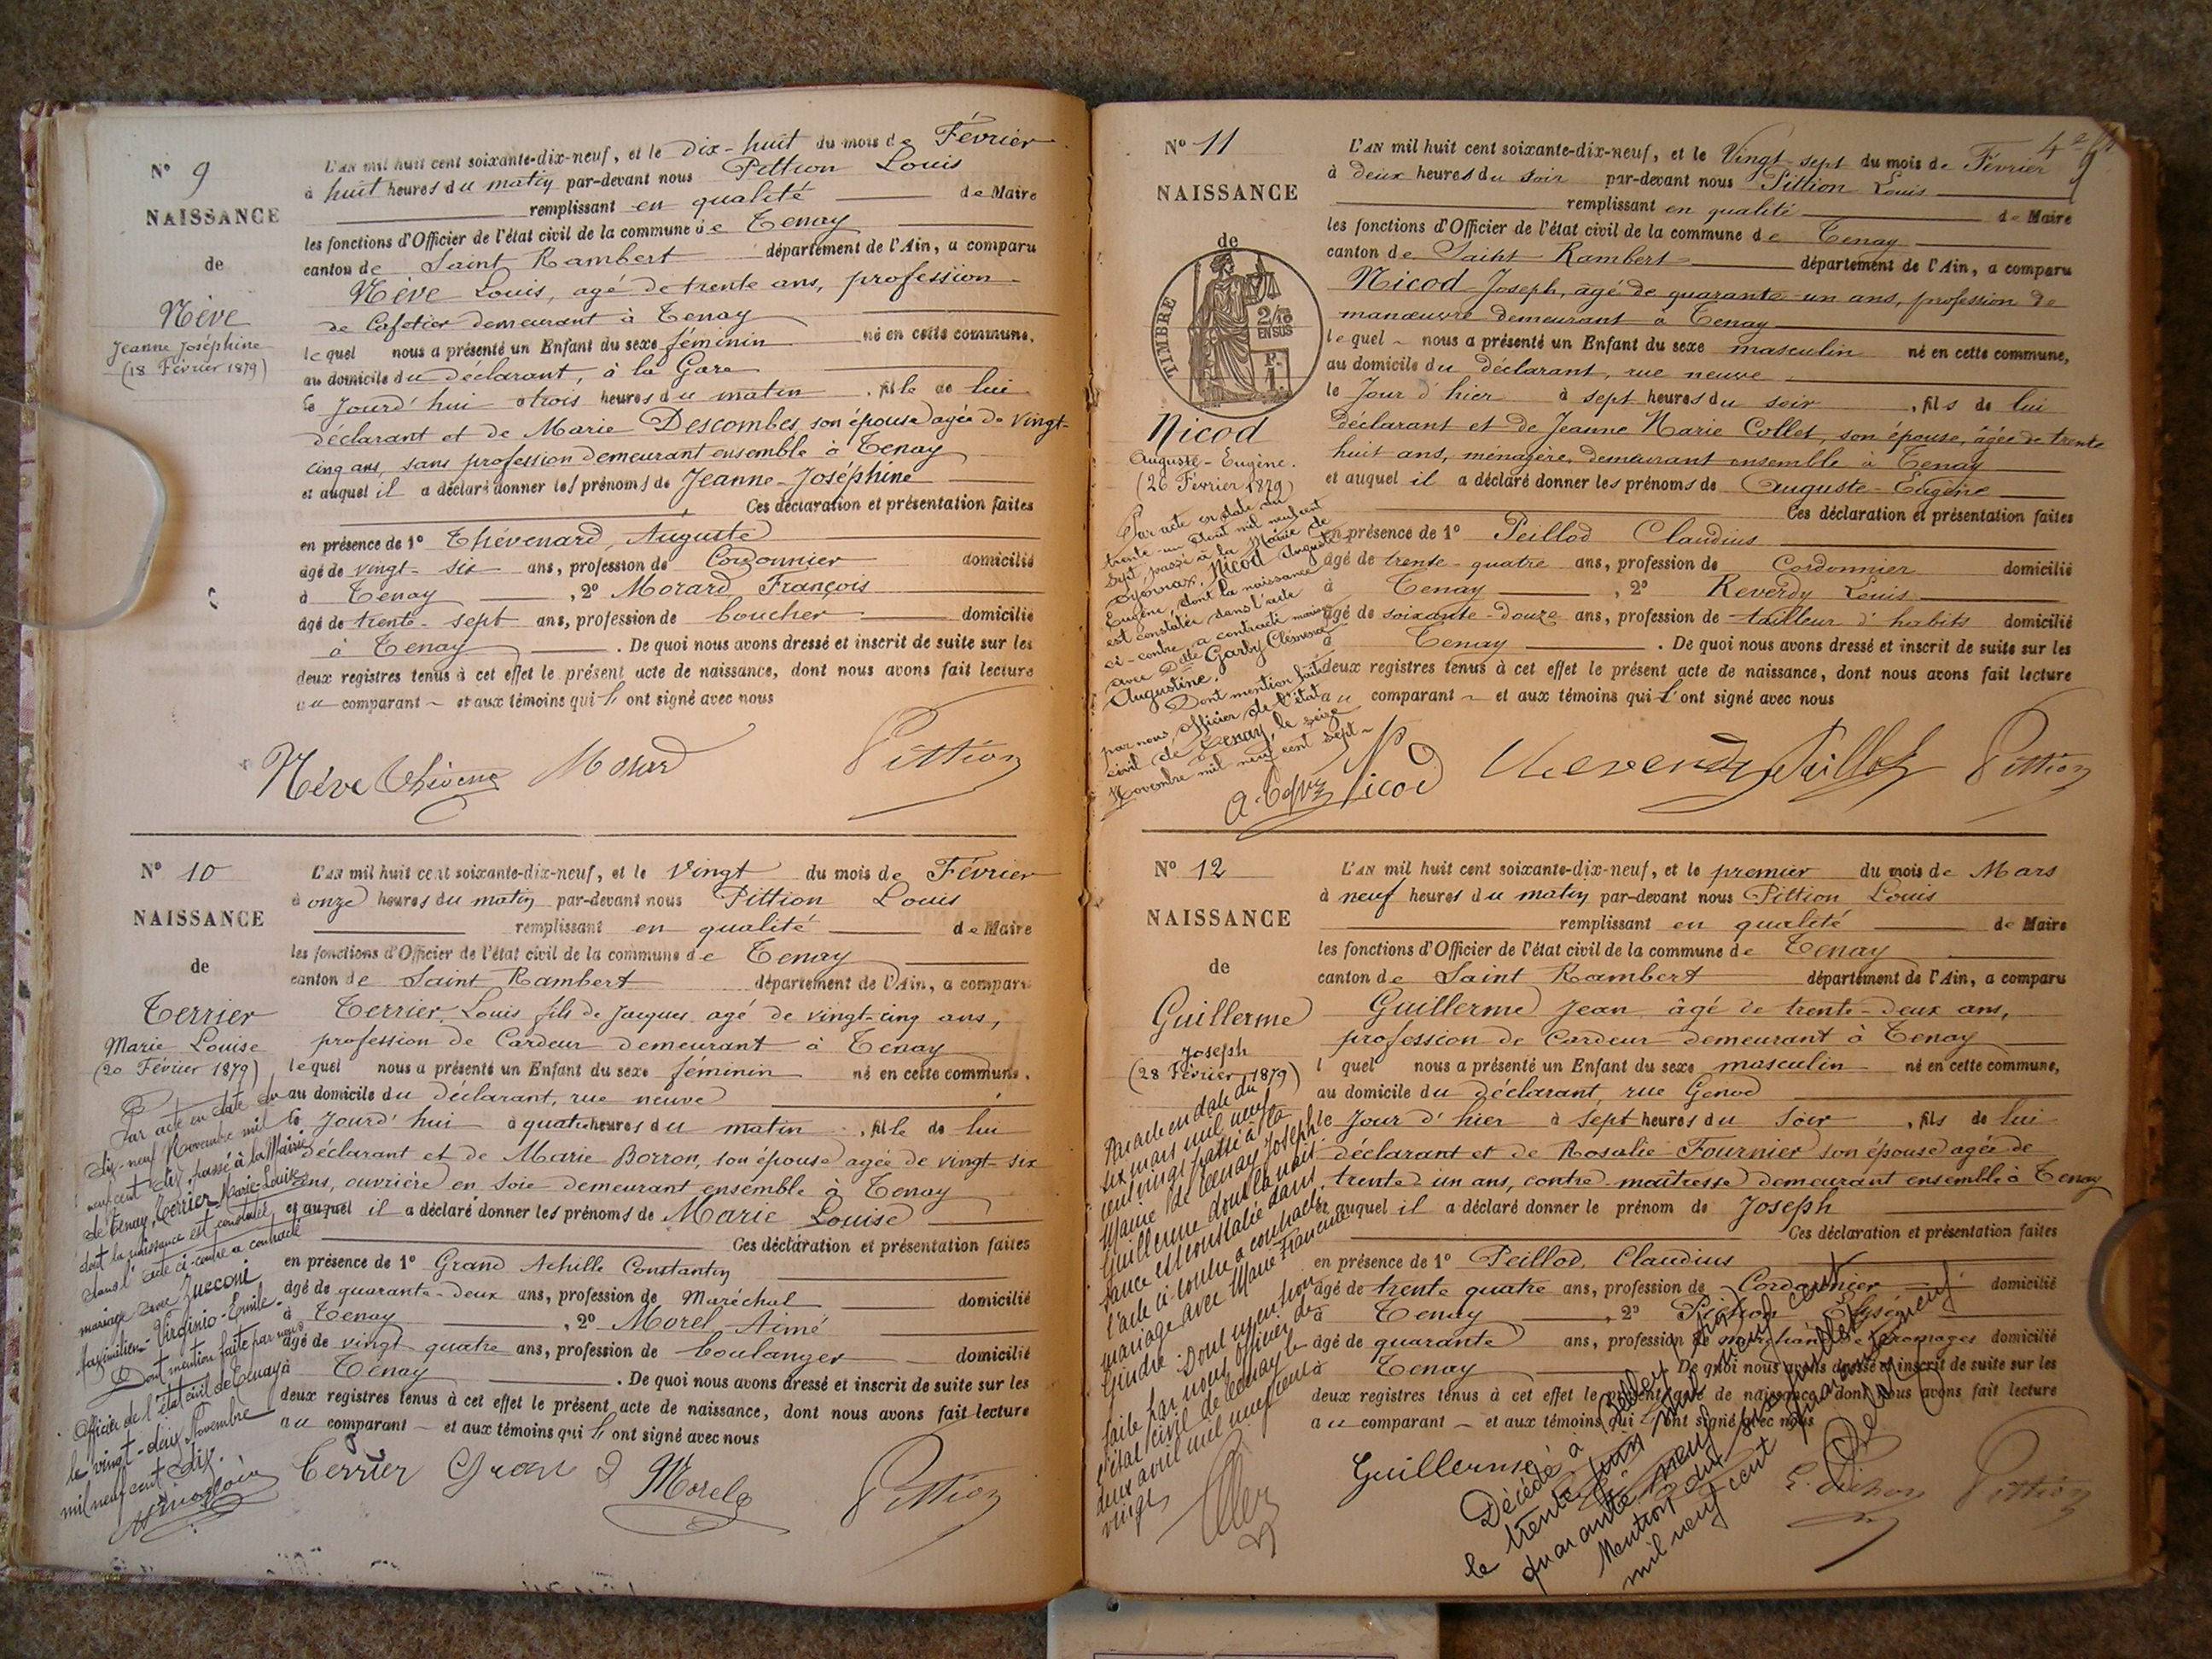 N° 9
NAISSANCE
de
Nève
Jeanne Joséphine
(18 Février 1879)
L'AN mil huit cent soixante-dix-neuf, et le dix-huit du mois de Février
à huit heures du matin par-devant nous Pittion Louis
remplissant en qualité de Maire
les fonctions d'Officier de l'état civil de la commune de Tenay
canton de Saint Rambert département de l'Ain, a comparu
Nève Louis, agé de trente ans, profession
de Cafetier demeurant à Tenay
lequel nous a présenté un Enfant du sexe féminin né en cette commune,
au domicile du déclarant, à la Gare
le Jourd'hui à trois heures du matin, fille de lui
déclarant et de Marie Descombes, son épouse agée de vingt-
cinq ans, sans profession demeurant ensemble à Tenay
et auquel il a déclaré donner les prénoms de Jeanne-Joséphine
Ces déclaration et présentation faites
en présence de 1° Thévenard, Auguste
âgé de vingt-six ans, profession de Cordonnier domicilié
à Tenay, 2° Morard François
âgé de trente-sept ans, profession de boucher domicilié
à Tenay. De quoi nous avons dressé et inscrit de suite sur les
deux registres tenus à cet effet le présent acte de naissance, dont nous avons fait lecture
au comparant et aux témoins qui l'ont signé avec nous
Nève Morard Pittion
N° 10
NAISSANCE
de
Terrier
Marie Louise
(20 Février 1879)
Par acte en date du
dix-neuf Novembre mil
neuf cent dix, passé à la Mairie
de Tenay, Terrier Marie-Louise
dont la naissance est constatée
dans l'acte ci-contre a contracté
mariage avec Zucconi
Virginio-Emile.
Dont mention faite par nous
Officier de l'état civil de Tenay
le vingt-deux Novembre
mil neuf cent dix.
L'AN mil huit cent soixante-dix-neuf, et le Vingt du mois de Février
à onze heures du matin par-devant nous Pittion Louis
remplissant en qualité de Maire
les fonctions d'Officier de l'état civil de la commune de Tenay
canton de Saint Rambert département de l'Ain, a comparu
Terrier Louis fils de Jacques agé de vingt-cinq ans,
profession de Cardeur demeurant à Tenay
lequel nous a présenté un Enfant du sexe féminin né en cette commune,
au domicile du déclarant, rue neuve
le Jourd'hui à quatre heures du matin, fille de lui
déclarant et de Marie Borron, son épouse agée de vingt-six
ans, ouvrière en soie demeurant ensemble à Tenay
et auquel il a déclaré donner les prénoms de Marie Louise
Ces déclaration et présentation faites
en présence de 1° Grand Achille Constantin
âgé de quarante-deux ans, profession de Maréchal domicilié
à Tenay, 2° Morel Aimé
âgé de vingt quatre ans, profession de boulanger domicilié
à Tenay. De quoi nous avons dressé et inscrit de suite sur les
deux registres tenus à cet effet le présent acte de naissance, dont nous avons fait lecture
au comparant et aux témoins qui l'ont signé avec nous
Terrier Grand Morel Pittion
N° 11
NAISSANCE
de
TIMBRE
2/10
EN SUS
F.
1.
Nicod
Auguste-Eugène.
(26 Février 1879)
Par acte en date du
trente-un Août mil neuf cent
sept, passé à la Mairie de
Oyonnax, Nicod Auguste
Eugène, dont la naissance
est constatée dans l'acte
ci-contre a contracté mariage
avec Delle Garby Clémence
Augustine.
Dont mention faite
par nous, officier de l'état
civil de Tenay, le seize
Novembre mil neuf cent sept
L'AN mil huit cent soixante-dix-neuf, et le Vingt-sept du mois de Février
à deux heures du soir par-devant nous Pittion Louis
remplissant en qualité de Maire
les fonctions d'Officier de l'état civil de la commune de Tenay
canton de Saint Rambert département de l'Ain, a comparu
Nicod Joseph, âgé de quarante-un ans, profession de
manœuvre demeurant à Tenay
lequel nous a présenté un Enfant du sexe masculin né en cette commune,
au domicile du déclarant, rue neuve
le Jour d'hier à sept heures du soir, fils de lui
déclarant et de Jeanne Marie Collet, son épouse, âgée de trente
huit ans, ménagère, demeurant ensemble à Tenay
et auquel il a déclaré donner les prénoms de Auguste-Eugène
Ces déclaration et présentation faites
en présence de 1° Peillod Claudius
âgé de trente-quatre ans, profession de Cordonnier domicilié
à Tenay, 2° Reverdy Louis
âgé de soixante-douze ans, profession de tailleur d'habits domicilié
à Tenay. De quoi nous avons dressé et inscrit de suite sur les
deux registres tenus à cet effet le présent acte de naissance, dont nous avons fait lecture
au comparant et aux témoins qui l'ont signé avec nous
Nicod Reverdy Peillod Pittion
N° 12
NAISSANCE
de
Guillerme
Joseph
(28 Février 1879)
Par acte en date du
six mars mil neuf
cent vingt passé à la
Mairie de Tenay Joseph
Guillerme dont la nais-
sance est constatée dans
l'acte ci-contre a contracté
mariage avec Marie Francine
Gindre. Dont mention
faite par nous officier de
l'état civil de Tenay le
deux avril mil neuf cent
vingt
L'AN mil huit cent soixante-dix-neuf, et le premier du mois de Mars
à neuf heures du matin par-devant nous Pittion Louis
remplissant en qualité de Maire
les fonctions d'Officier de l'état civil de la commune de Tenay
canton de Saint Rambert département de l'Ain, a comparu
Guillerme Jean âgé de trente-deux ans,
profession de Cardeur demeurant à Tenay
lequel nous a présenté un Enfant du sexe masculin né en cette commune,
au domicile du déclarant, rue Genod
le Jour d'hier à sept heures du soir, fils de lui
déclarant et de Rosalie Fournier son épouse agée de
trente un ans, contre-maîtresse demeurant ensemble à Tenay
et auquel il a déclaré donner le prénom de Joseph
Ces déclaration et présentation faites
en présence de 1° Peillod, Claudius
âgé de trente quatre ans, profession de Cordonnier domicilié
à Tenay, 2°
âgé de quarante ans, profession de marchand de fromages domicilié
à Tenay. De quoi nous avons dressé et inscrit de suite sur les
deux registres tenus à cet effet le présent acte de naissance, dont nous avons fait lecture
au comparant et aux témoins qui l'ont signé avec nous
Guillerme Pittion
Décédé à Belley (Ain)
le trente juin mil neuf cent
quarante neuf
Mention du six juillet
mil neuf cent quarante neuf